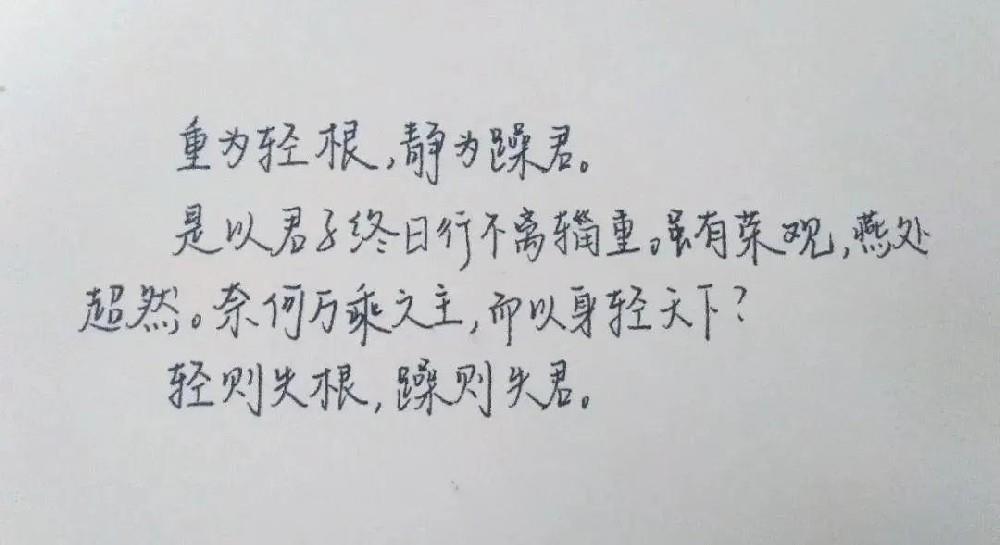 重为轻根,静为躁君。
是以君子终日行不离辎重。虽有荣观,燕处
超然。奈何万乘之主,而以身轻天下?
轻则失根,躁则失君。